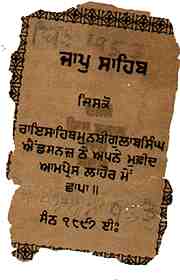 ਜਾਪੁ ਸਾਹਿਬ
ਜਿਸਕੋ
ਰਾਇਸਾਹਿਬਮੁਨਸ਼ੀਗੁਲਾਬਸਿੰਘ
ਐਂਡਸਨਜ਼ ਨੇ ਅਪਨੇ ਮੁਫ਼ੀਦ
ਆਮਪ੍ਰੈਸ ਲਾਹੌਰ ਮੇਂ
ਛਾਪਾ॥
ਸੰਨ ੧੯੧੭ ਈਃ